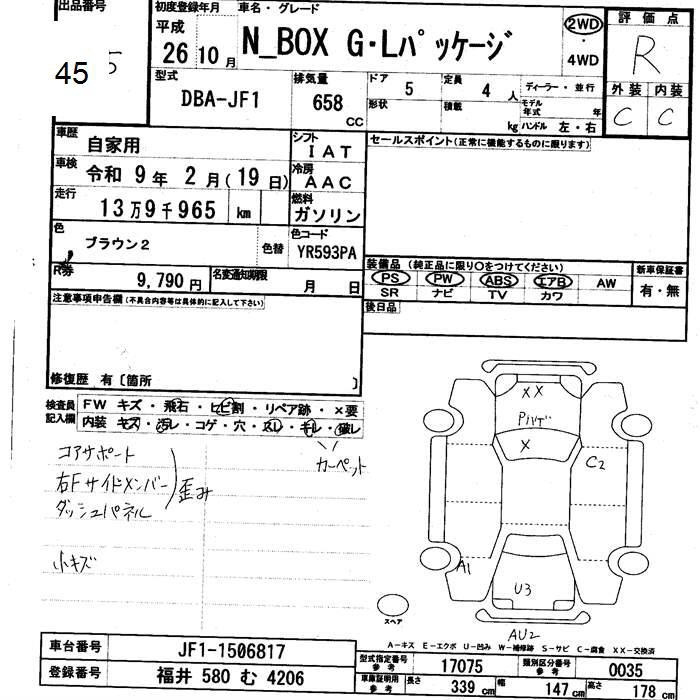 出品番号
45
5
初度登録年月
平成
26 10 月
車名・グレード
N_BOX G・Lパッケージ
2WD
・
4WD
評価点
R
外装 内装
C C
型式
DBA-JF1
排気量
658
CC
ドア
5
形状
定員
4 人
積載
kg
ディーラー・並行
モデル年式 年
ハンドル 左・右
車歴
自家用
車検
令和 9 年 2 月 ( 19 日)
走行
13 万 9 千 965 km
色
ブラウン2
色替
シフト
IAT
冷房
AAC
燃料
ガソリン
色コード
YR593PA
R券
9,790 円
名変通知期限
月 日
セールスポイント(正常に機能するものに限ります)
装備品 (純正品に限り○をつけてください)
PS PW ABS エアB AW
SR ナビ TV カワ
新車保証書
有・無
後日品
注意事項申告欄(不具合内容等は具体的に記入して下さい)
修復歴 有〔箇所 〕
検査員記入欄
FW キズ・飛石・ヒビ割・リペア跡・×要
内装 キズ・汚レ・コゲ・穴・スレ・キレ・破レ
カーペット
コアサポート
右Fサイドメンバー
ダッシュパネル
歪み
小キズ
XX
Pハゲ
X
C2
A1
U3
AU2
スペア
A-キズ E-エクボ U-凹み W-補修跡 S-サビ C-腐食 XX-交換済
車台番号
JF1-1506817
登録番号
福井 580 む 4206
型式指定番号
参考
17075
類別区分番号
参考
0035
車庫証明用
参考
長さ 339 cm
幅 147 cm
高さ 178 cm